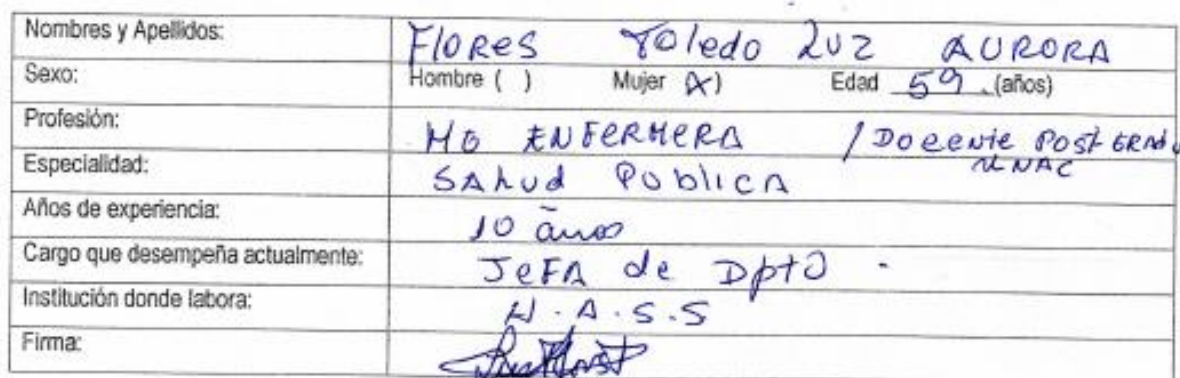 Nombres y Apellidos: Flores Toledo Luz Aurora
Sexo: Hombre ( ) Mujer (X) Edad 59 (años)
Profesión: MG ENFERMERA / Docente Post GRADO UNAC
Especialidad: SALUD PUBLICA
Años de experiencia: 10 años
Cargo que desempeña actualmente: JEFA de Dpto.
Institución donde labora: H.A.S.S
Firma: